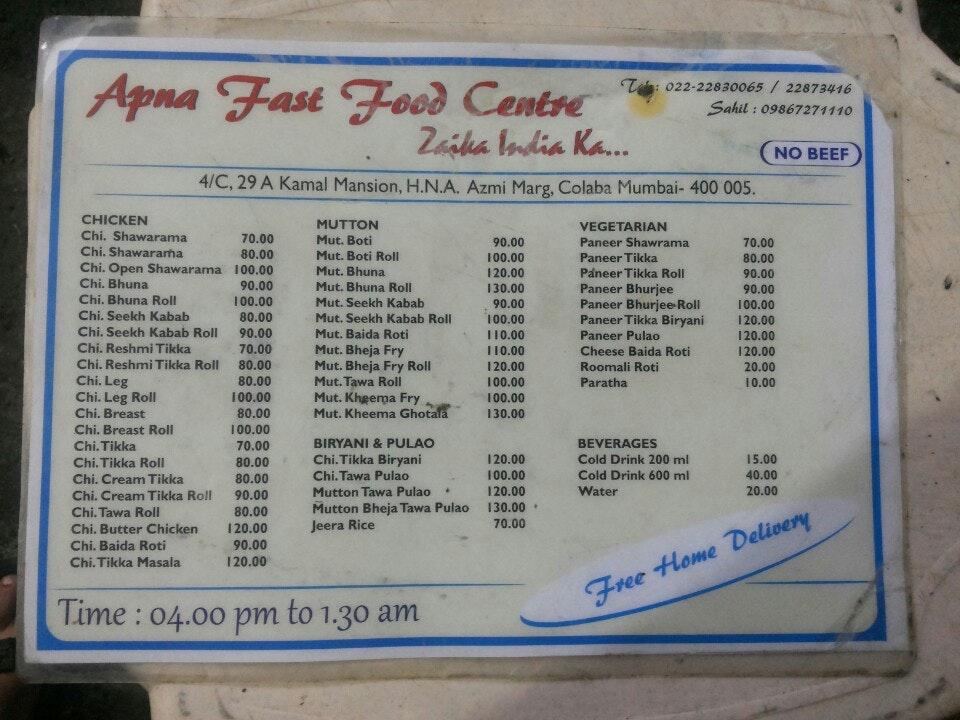 Apna Fast Food Centre
Zaika India Ka...
Tele: 022-22830065 / 22873416
Sahil : 09867271110
NO BEEF
4/C, 29 A Kamal Mansion, H.N.A. Azmi Marg, Colaba Mumbai- 400 005.
CHICKEN
Chi. Shawarama 70.00
Chi. Shawarama 80.00
Chi. Open Shawarama 100.00
Chi. Bhuna 90.00
Chi. Bhuna Roll 100.00
Chi. Seekh Kabab 80.00
Chi. Seekh Kabab Roll 90.00
Chi. Reshmi Tikka 70.00
Chi. Reshmi Tikka Roll 80.00
Chi. Leg 80.00
Chi. Leg Roll 100.00
Chi. Breast 80.00
Chi. Breast Roll 100.00
Chi. Tikka 70.00
Chi. Tikka Roll 80.00
Chi. Cream Tikka 80.00
Chi. Cream Tikka Roll 90.00
Chi. Tawa Roll 80.00
Chi. Butter Chicken 120.00
Chi. Baida Roti 90.00
Chi. Tikka Masala 120.00
MUTTON
Mut. Boti 90.00
Mut. Boti Roll 100.00
Mut. Bhuna 120.00
Mut. Bhuna Roll 130.00
Mut. Seekh Kabab 90.00
Mut. Seekh Kabab Roll 100.00
Mut. Baida Roti 110.00
Mut. Bheja Fry 110.00
Mut. Bheja Fry Roll 120.00
Mut. Tawa Roll 100.00
Mut. Kheema Fry 100.00
Mut. Kheema Ghotala 130.00
BIRYANI & PULAO
Chi. Tikka Biryani 120.00
Chi. Tawa Pulao 100.00
Mutton Tawa Pulao 120.00
Mutton Bheja Tawa Pulao 130.00
Jeera Rice 70.00
VEGETARIAN
Paneer Shawrama 70.00
Paneer Tikka 80.00
Paneer Tikka Roll 90.00
Paneer Bhurjee 90.00
Paneer Bhurjee Roll 100.00
Paneer Tikka Biryani 120.00
Paneer Pulao 120.00
Cheese Baida Roti 120.00
Roomali Roti 20.00
Paratha 10.00
BEVERAGES
Cold Drink 200 ml 15.00
Cold Drink 600 ml 40.00
Water 20.00
Free Home Delivery
Time : 04.00 pm to 1.30 am